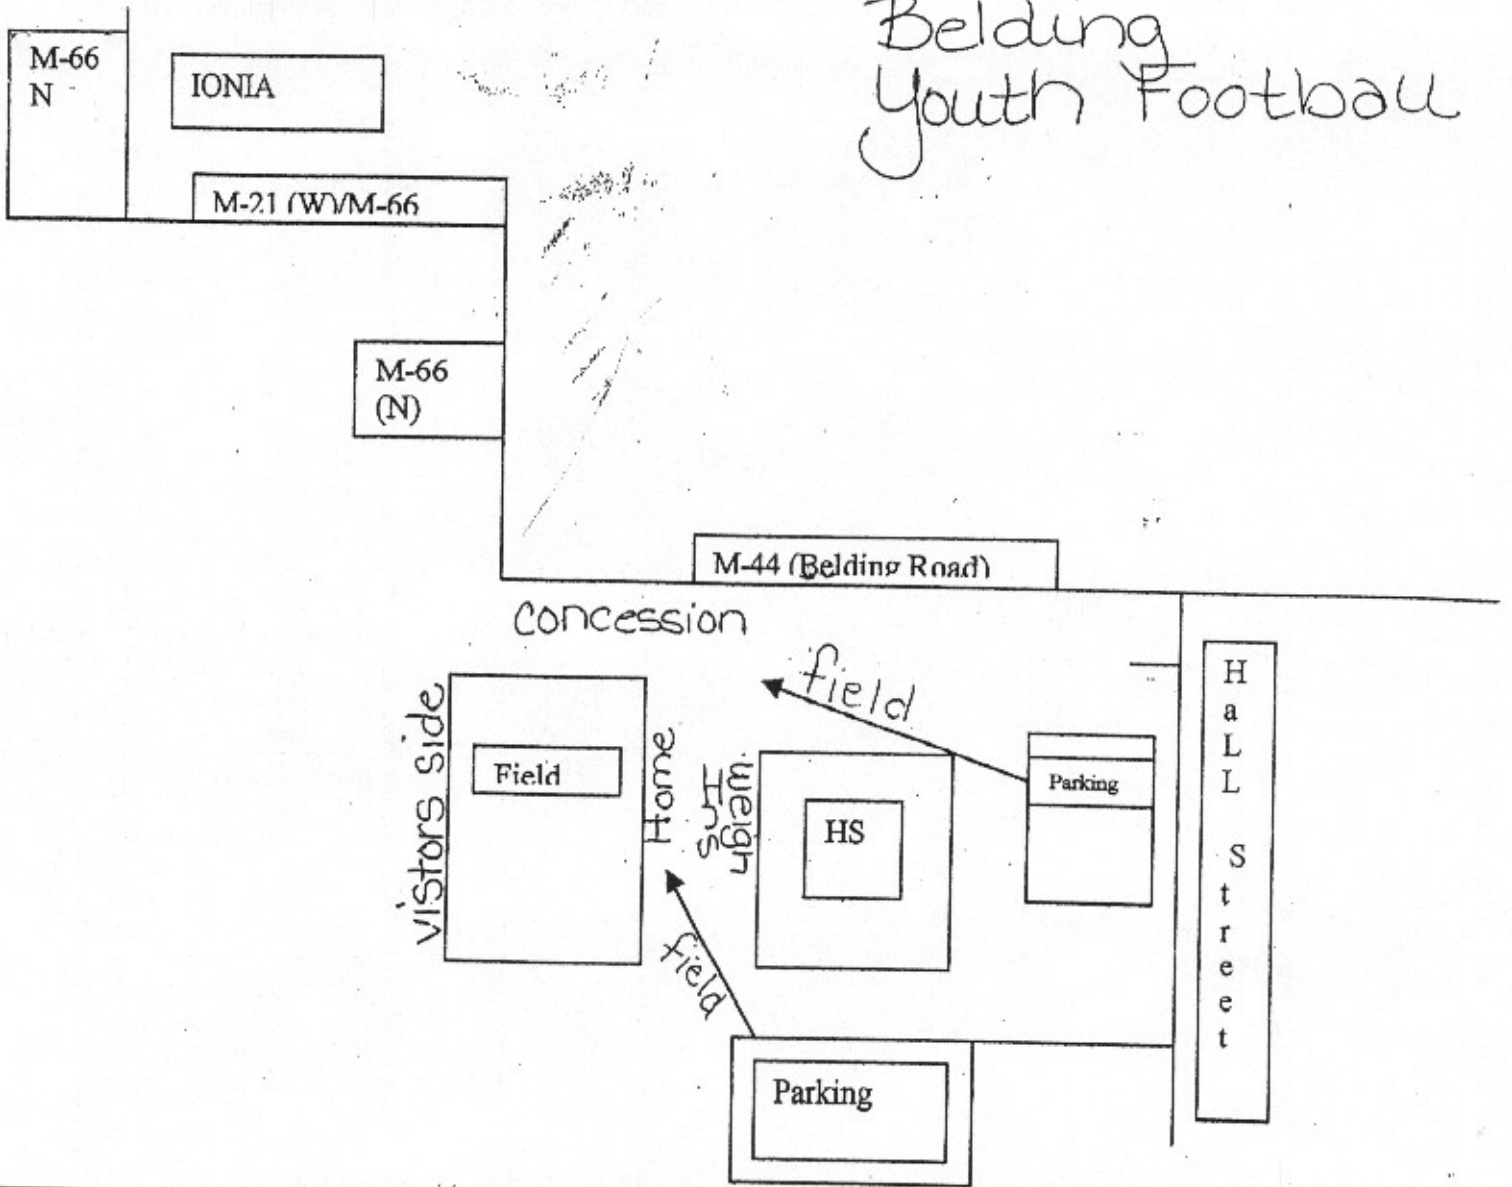 Belding
Youth Football
M-66
N
IONIA
M-21 (W)/M-66
M-66
(N)
M-44 (Belding Road)
concession
field
HaLL Street
Vistors Side
Field
Home
Weigh
Ins
HS
Parking
field
Parking